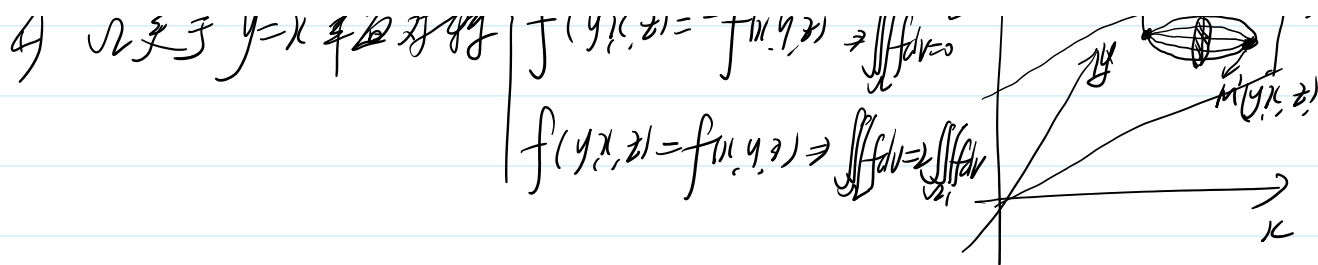 4) Ω关于y=x平面对称 | f(y,x,z)=-f(x,y,z) ⇒ ∭_Ω fdv=0
f(y,x,z)=f(x,y,z) ⇒ ∭_Ω fdv=2∭_Ω₁ fdv
y
M'(y,x,z)
x